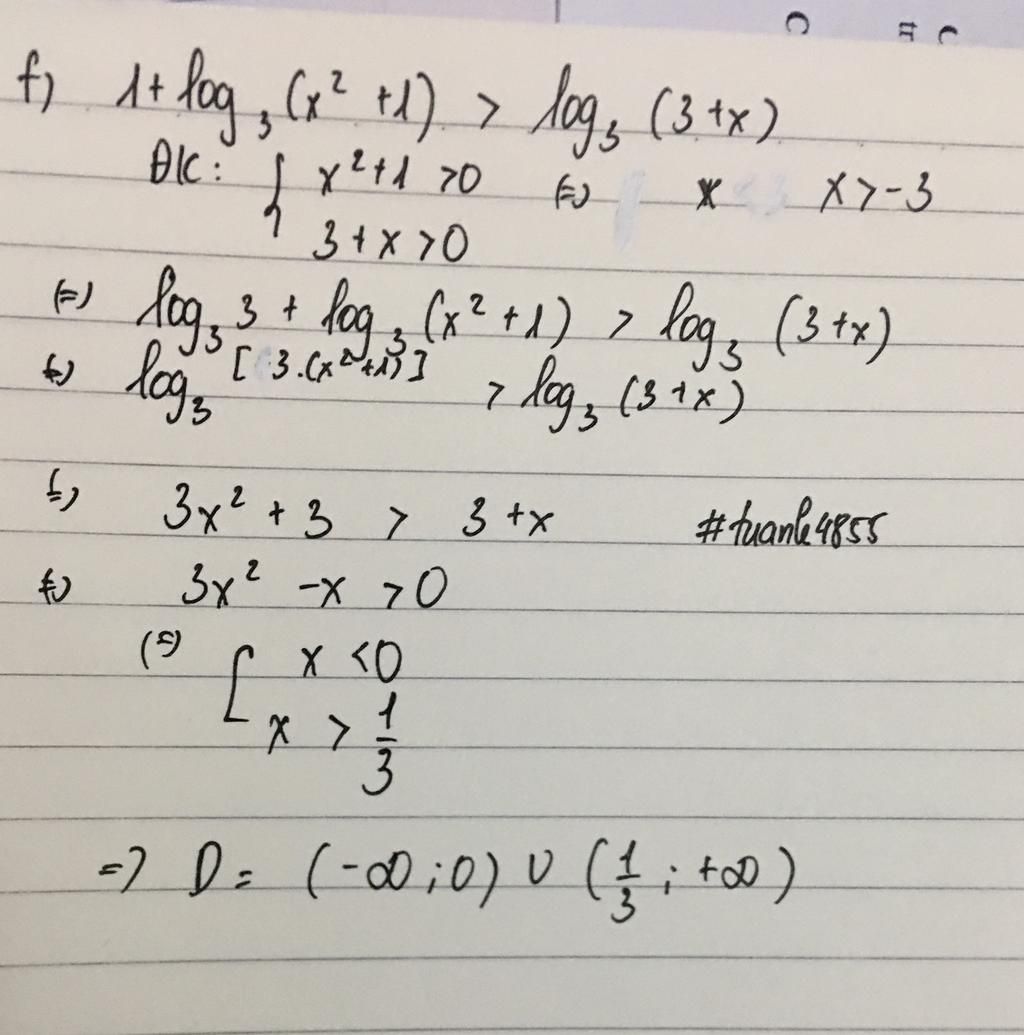 f) 1 + log₃ (x² + 1) > log₃ (3 + x)
ĐK: { x² + 1 > 0 (=) x x > -3
3 + x > 0
(=) log₃ 3 + log₃ (x² + 1) > log₃ (3 + x)
(=) log₃ [3.(x² + 1)] > log₃ (3 + x)
(=) 3x² + 3 > 3 + x #tuanle4855
(=) 3x² - x > 0
(=) [ x < 0
x > 1/3
=> D = (-∞; 0) ∪ (1/3; +∞)